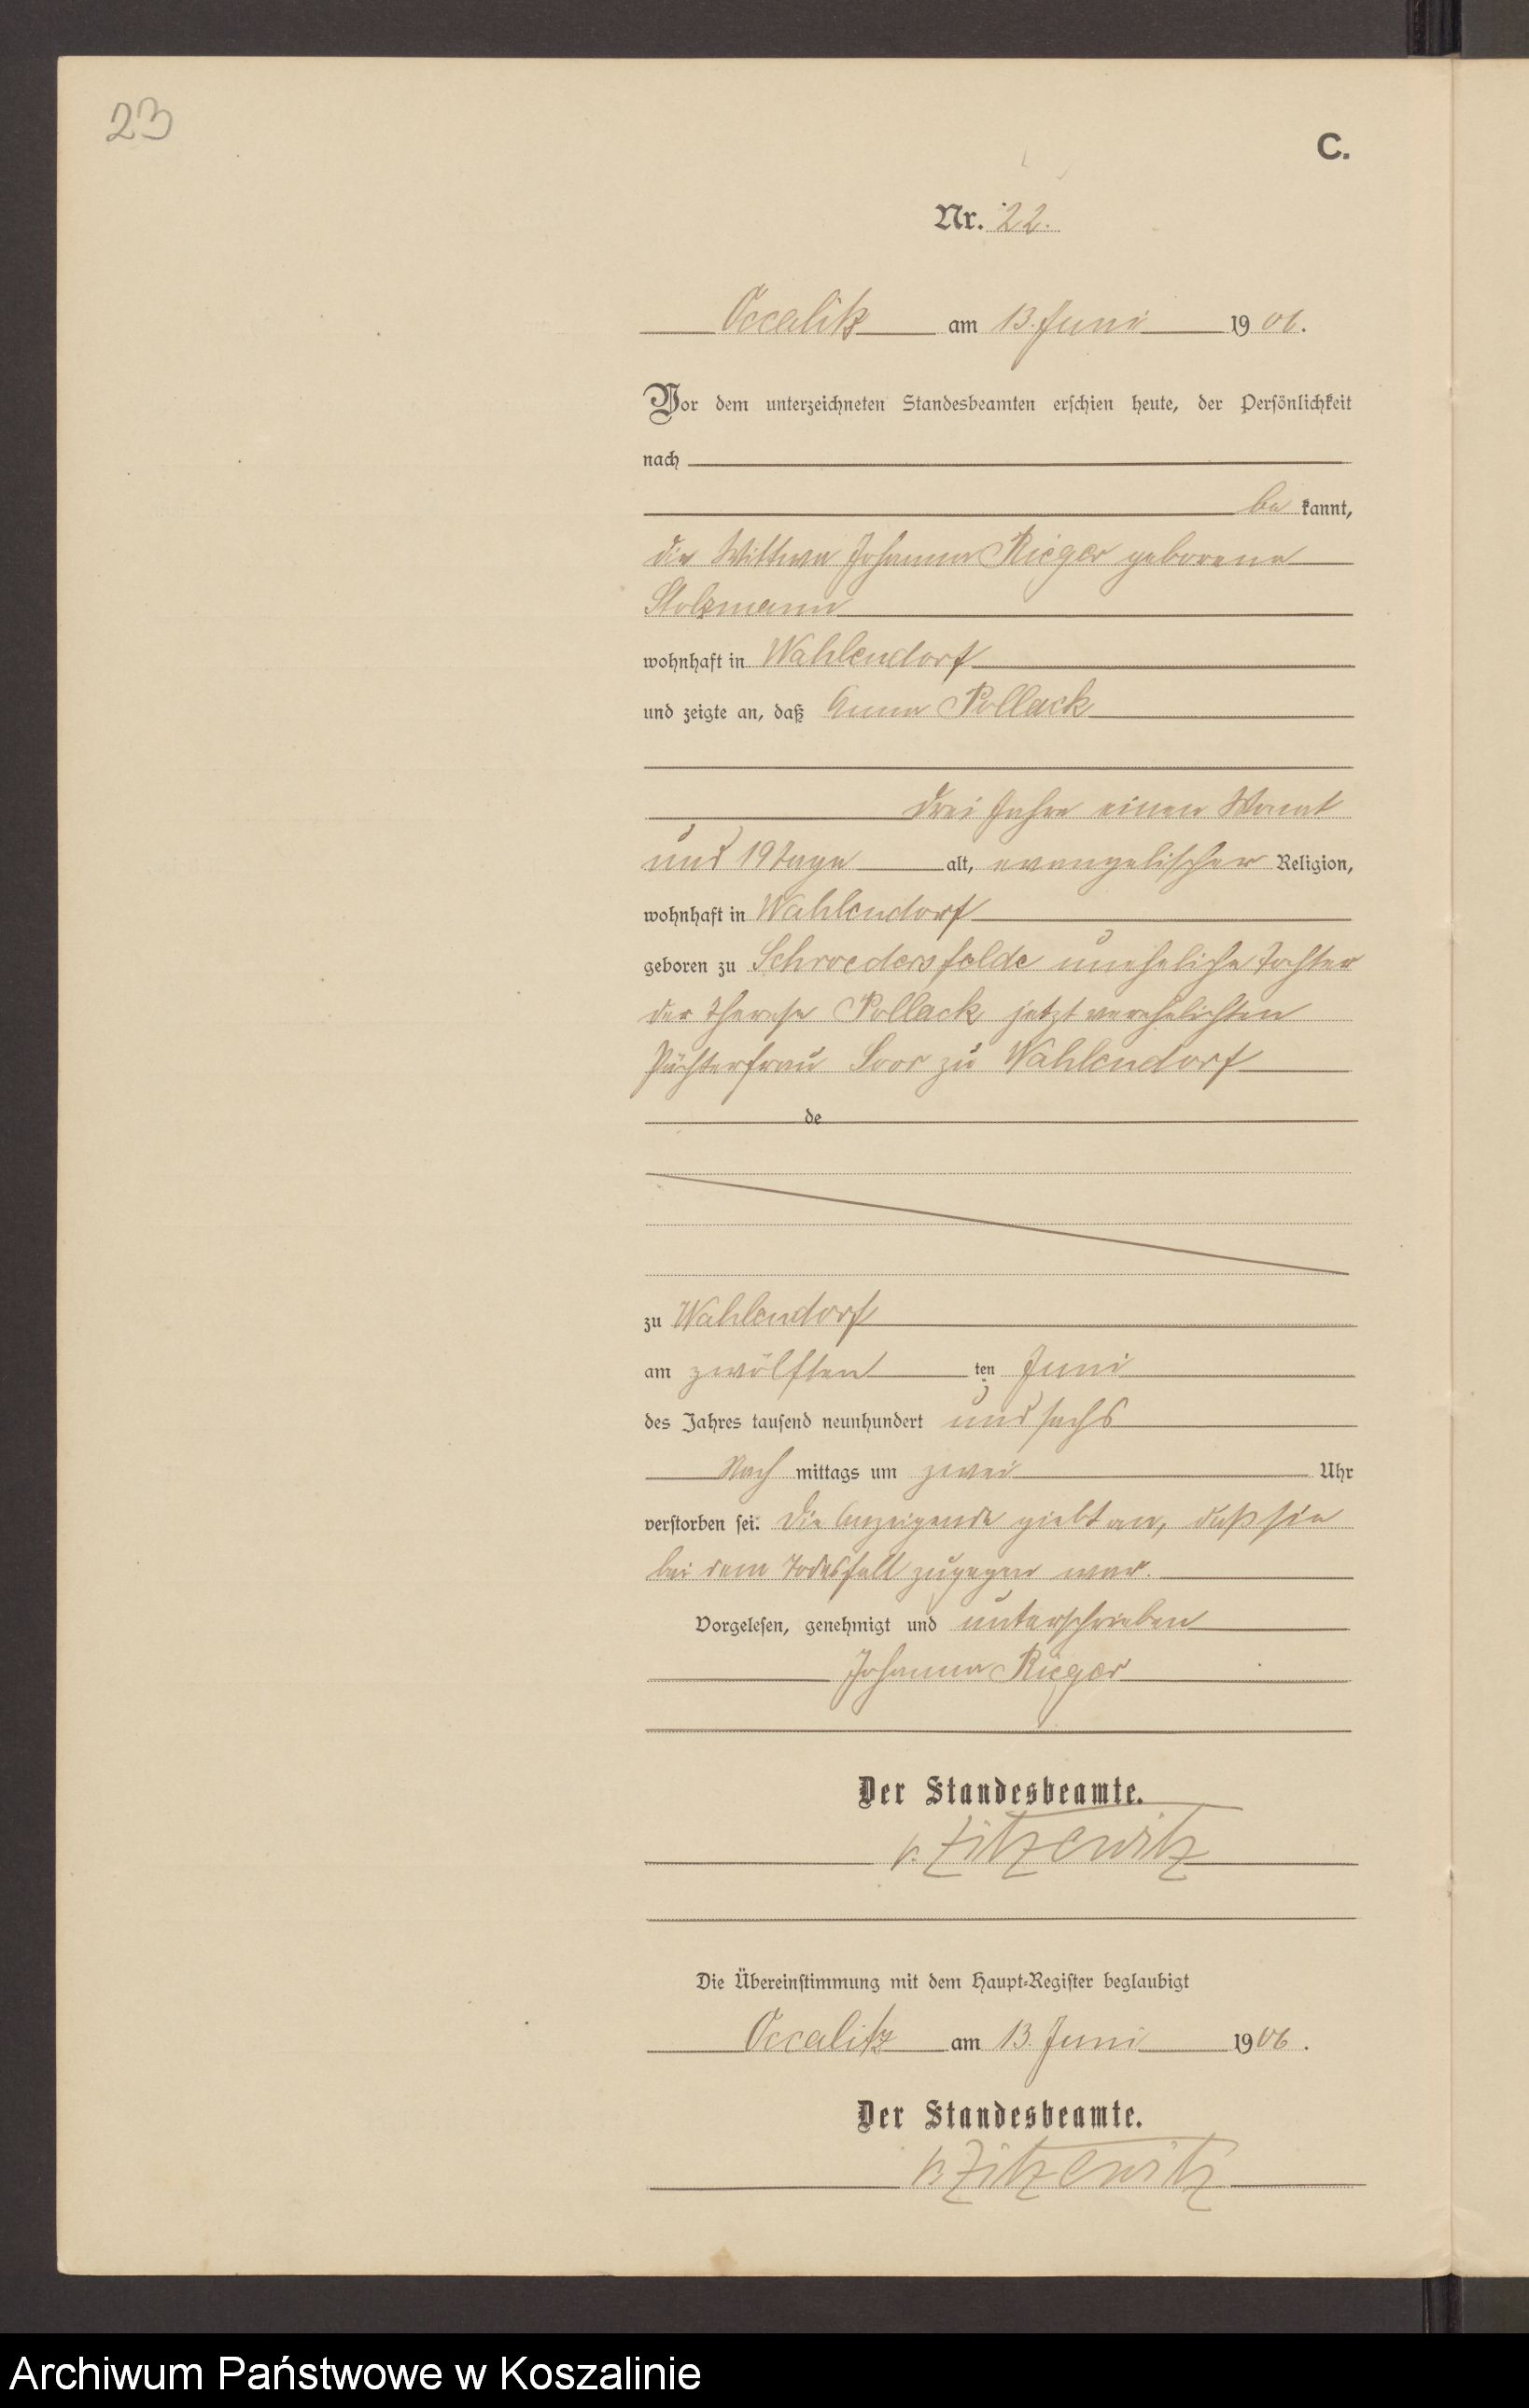 23
C.
Nr. 22.
Occalitz am 13. Juni 1906.
Vor dem unterzeichneten Standesbeamten erschien heute, der Persönlichkeit
nach
be kannt,
die Wittwe Johanna Rieger geborene
Stolzmann
wohnhaft in Wahlendorf
und zeigte an, daß Anna Pollack
drei Jahre einen Monat
und 19 Tage alt, evangelischer Religion,
wohnhaft in Wahlendorf
geboren zu Schroedersfelde uneheliche Tochter
der Therese Pollack jetzt verehelichten
Pächterfrau Soor zu Wahlendorf
de
zu Wahlendorf
am zwölften ten Juni
des Jahres tausend neunhundert und sechs
Nach mittags um zwei Uhr
verstorben sei. Die Anzeigende giebt an, daß sie
bei dem Todesfall zugegen war.
Vorgelesen, genehmigt und unterschrieben
Johanna Rieger
Der Standesbeamte.
v. Zitzewitz
Die Übereinstimmung mit dem Haupt-Register beglaubigt
Occalitz am 13. Juni 1906.
Der Standesbeamte.
v. Zitzewitz
Archiwum Państwowe w Koszalinie